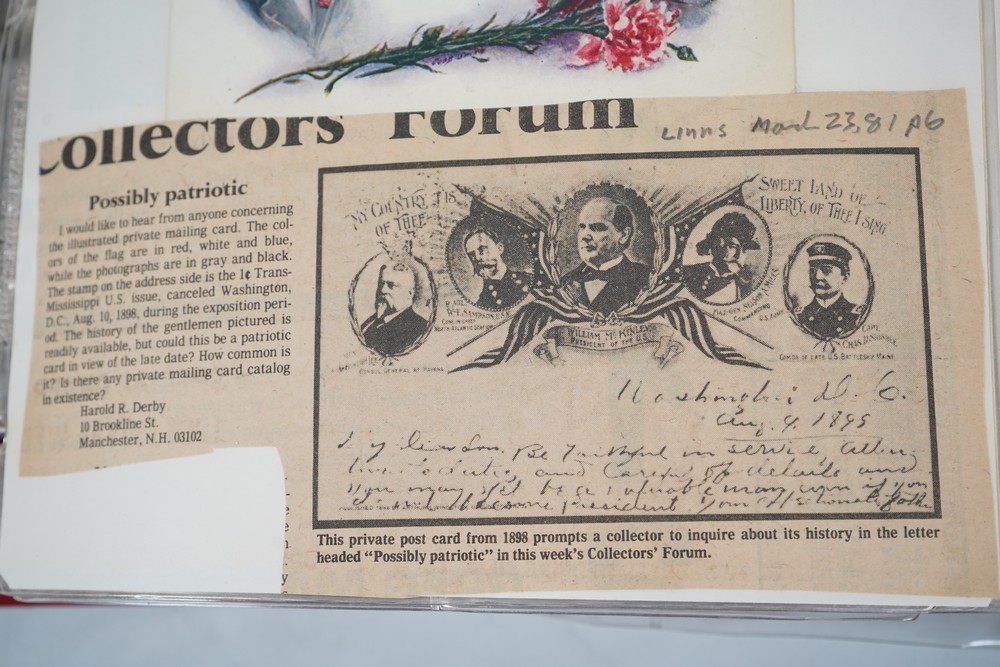 Collectors' Forum
Linns March 23, 81 p6
Possibly patriotic
I would like to hear from anyone concerning
the illustrated private mailing card. The col-
ors of the flag are in red, white and blue,
while the photographs are in gray and black.
The stamp on the address side is the 1¢ Trans-
Mississippi U.S. issue, canceled Washington,
D.C., Aug. 10, 1898, during the exposition peri-
od. The history of the gentlemen pictured is
readily available, but could this be a patriotic
card in view of the late date? How common is
it? Is there any private mailing card catalog
in existence?
Harold R. Derby
10 Brookline St.
Manchester, N.H. 03102
y
MY COUNTRY 'TIS
OF THEE
SWEET LAND OF
LIBERTY, OF THEE I SING
CONSUL GENERAL AT HAVANA
W.T. SAMPSON U.S.N.
COM. IN CHIEF
NORTH ATLANTIC STATION
WILLIAM McKINLEY
PRESIDENT OF THE U.S.
MAJ-GEN. NELSON A. MILES
COMMANDING
U.S. ARMY
CAPT.
CHAS. D. SIGSBEE
COMDR OF LATE U.S. BATTLESHIP MAINE
Washington D. C.
Aug. 9, 1898
My dear Son. Be faithful in service atten-
tive to duty and careful of details and
you may yet be a valuable man even if you
president your affectionate father
This private post card from 1898 prompts a collector to inquire about its history in the letter
headed “Possibly patriotic” in this week's Collectors' Forum.